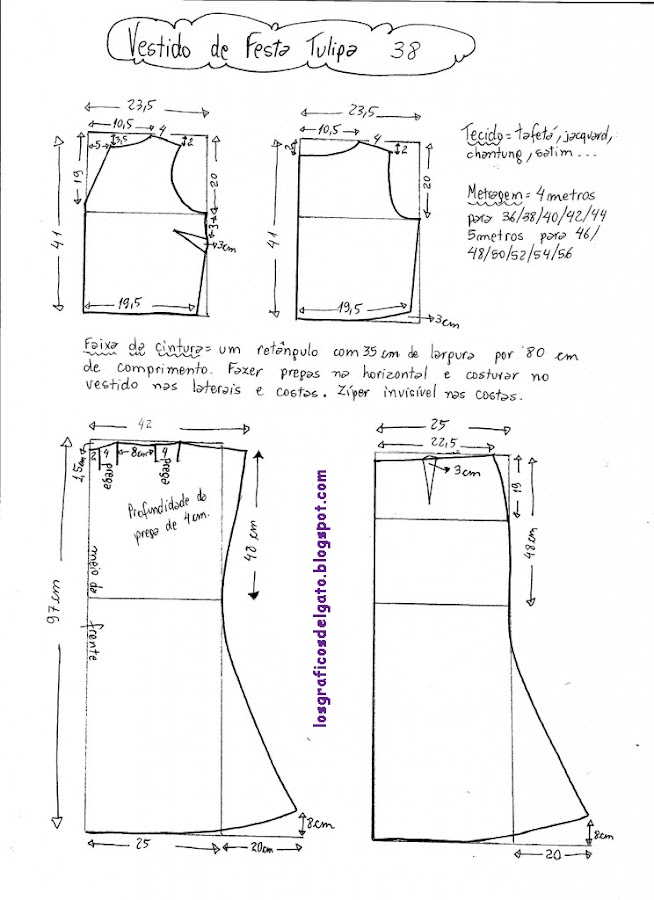 Vestido de Festa Tulipa 38
23,5
10,5
4
5
3,5
2
19
41
20
3
3cm
19,5
23,5
10,5
4
2
2
41
20
19,5
3cm
Tecido = tafetá, jacquard,
chantung, satim...
Metragem = 4 metros
para 36/38/40/42/44
5 metros para 46/
48/50/52/54/56
Faixa da cintura = um retângulo com 35 cm de largura por 80 cm
de comprimento. Fazer pregas na horizontal e costurar no
vestido nas laterais e costas. Zíper invisível nas costas.
42
1,5cm
4
8cm
4
prega
prega
Profundidade da
prega de 4 cm.
meio da frente
97cm
48 cm
25
20cm
8cm
25
22,5
3cm
19
48cm
20
8cm
losgraficosdelgato.blogspot.com